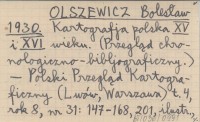 OLSZEWICZ Bolesław
1930. Kartografja polska XV
i XVI wieku. (Przegląd chro-
nologiczno-bibljograficzny.)
– Polski Przegląd Kartogra-
ficzny (Lwów, Warszawa) t. 4,
rok 8, nr. 31: 147-168, 201, ilustr.